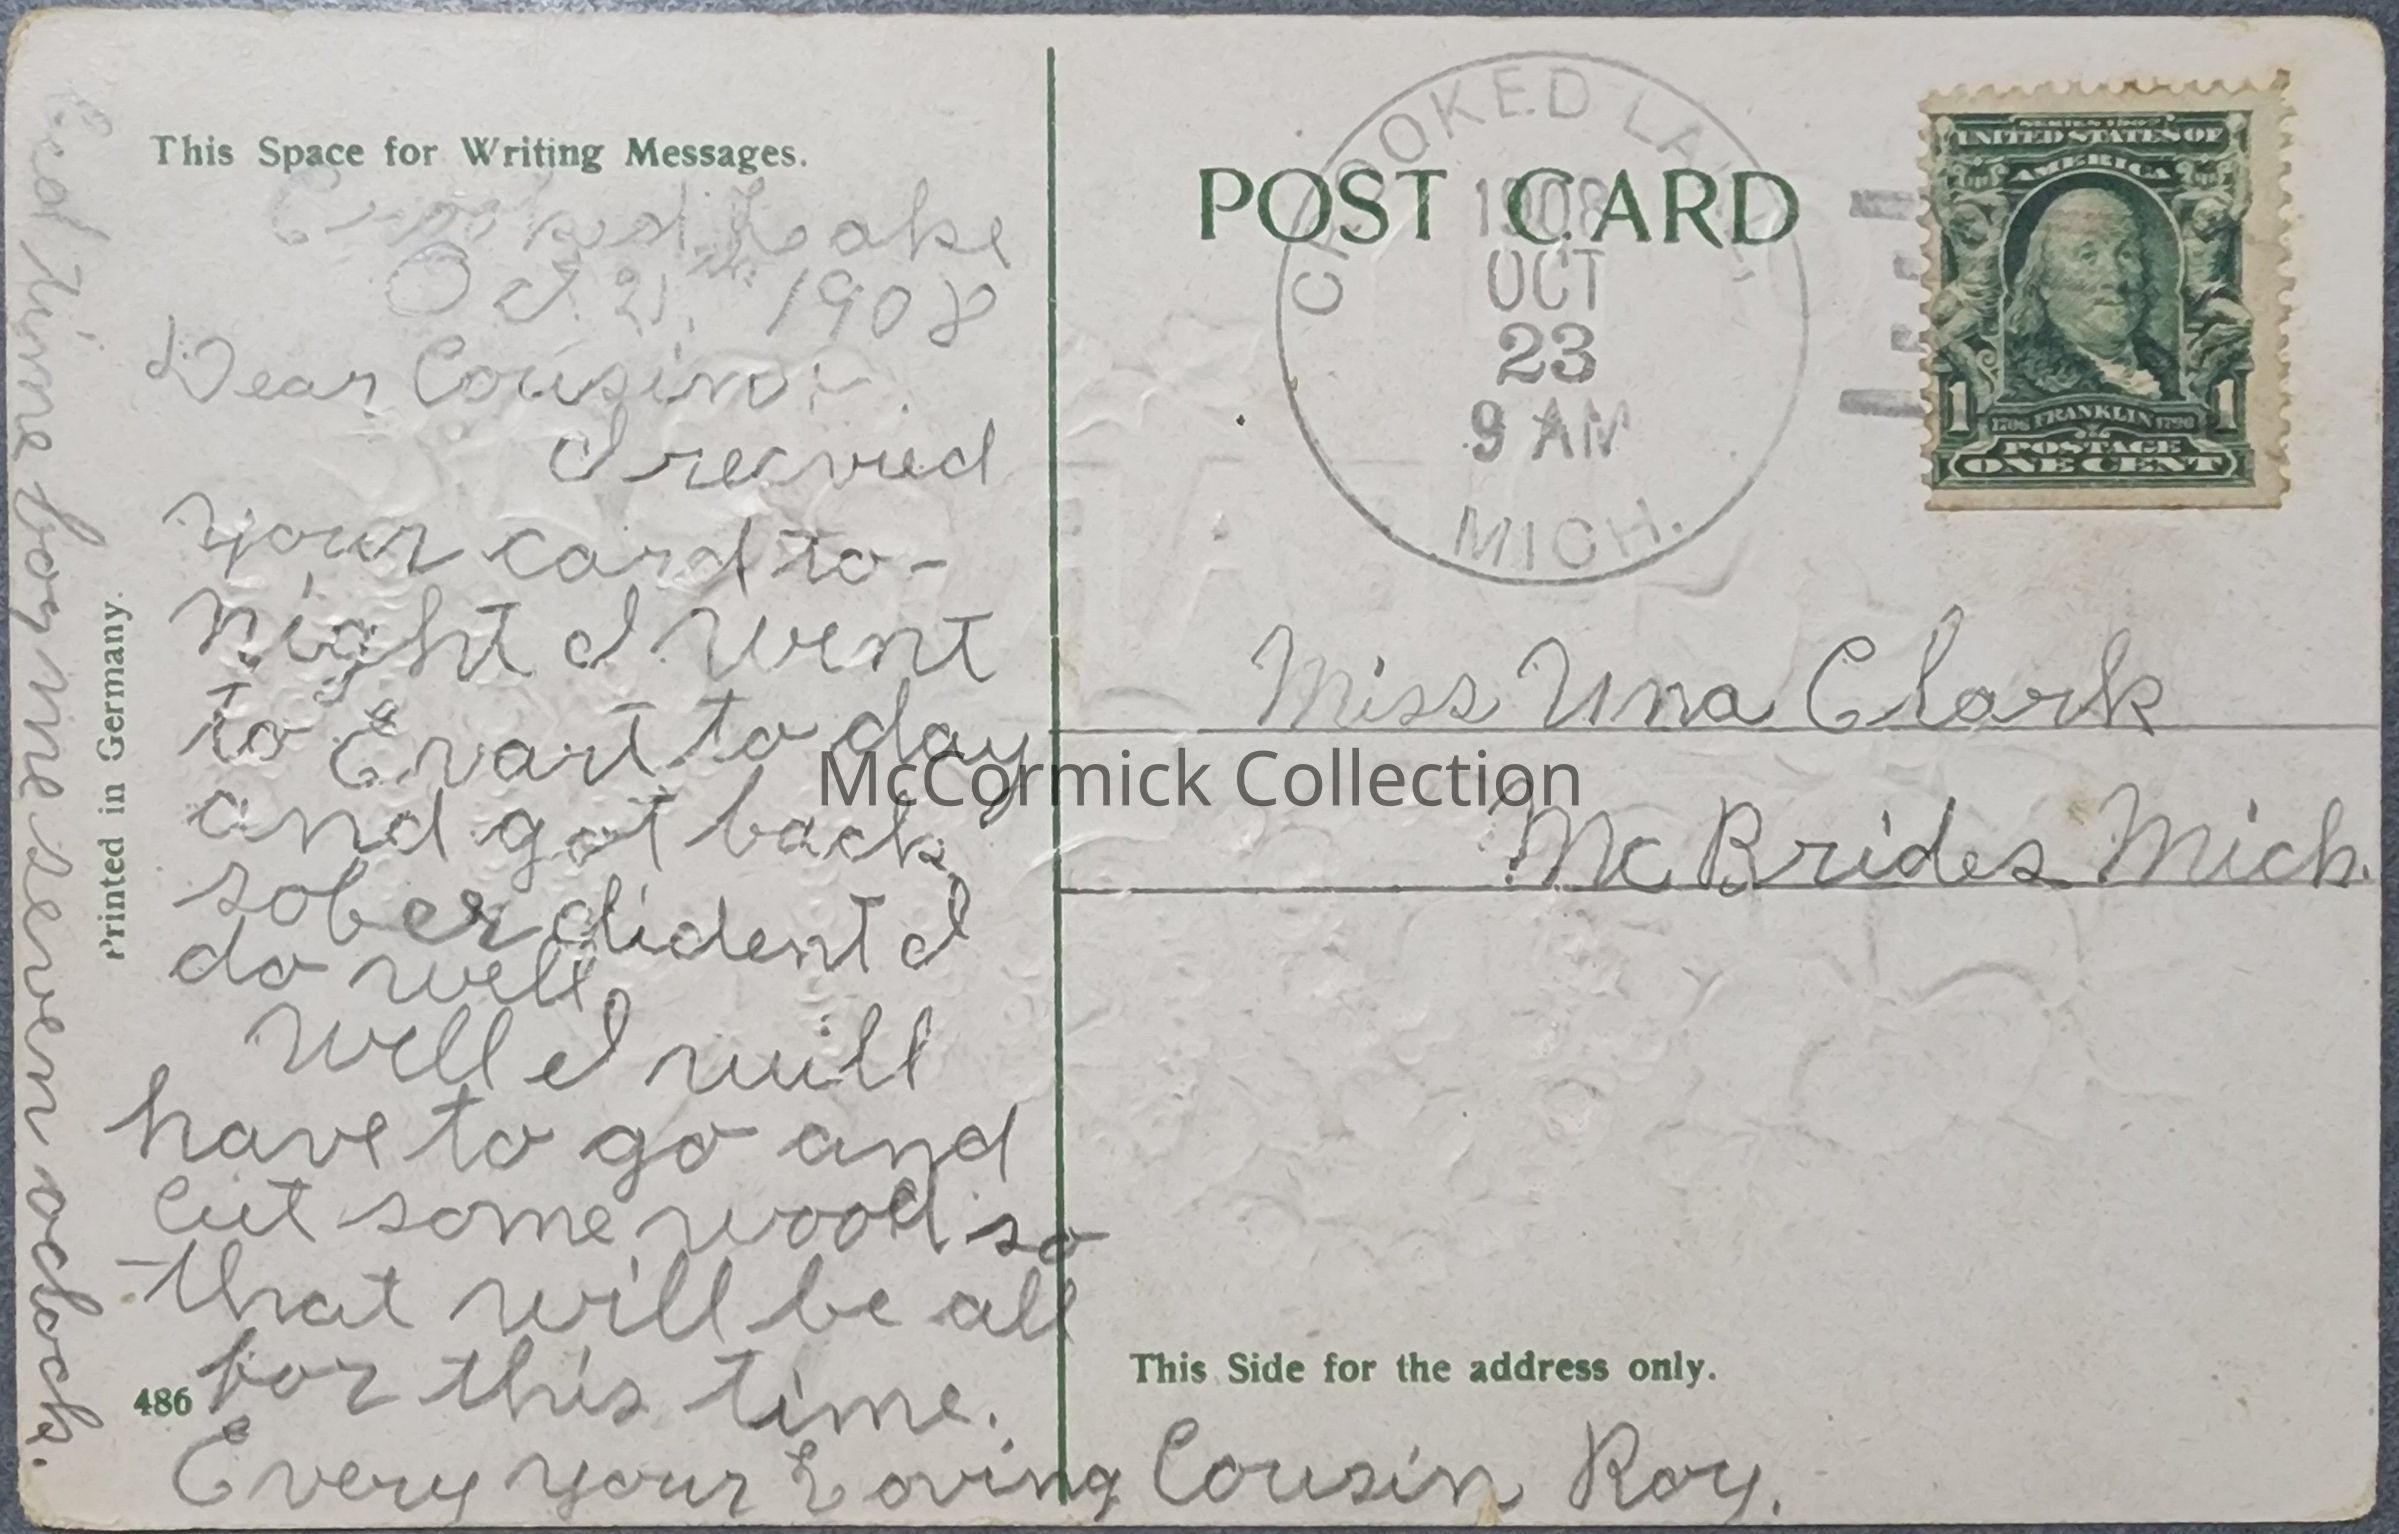 This Space for Writing Messages.
Crooked Lake
Oct. 21, 1908
Dear Cousin:-
I recvied
your card to-
night I went
to Evart to day
and got back
sober dident I
do well,
Well I will
have to go and
Cut some wood so
that will be all
for this time.
Every your Loving Cousin Roy.
Bed time for me seven oclock.
Printed in Germany.
486
POST CARD
CROOKED LAKE,
1908
OCT
23
9 AM
MICH.
SERIES 1902
UNITED STATES OF
AMERICA
1 1
1706 FRANKLIN 1790
POSTAGE
ONE CENT
Miss Una Clark
McBrides Mich.
This Side for the address only.
McCormick Collection